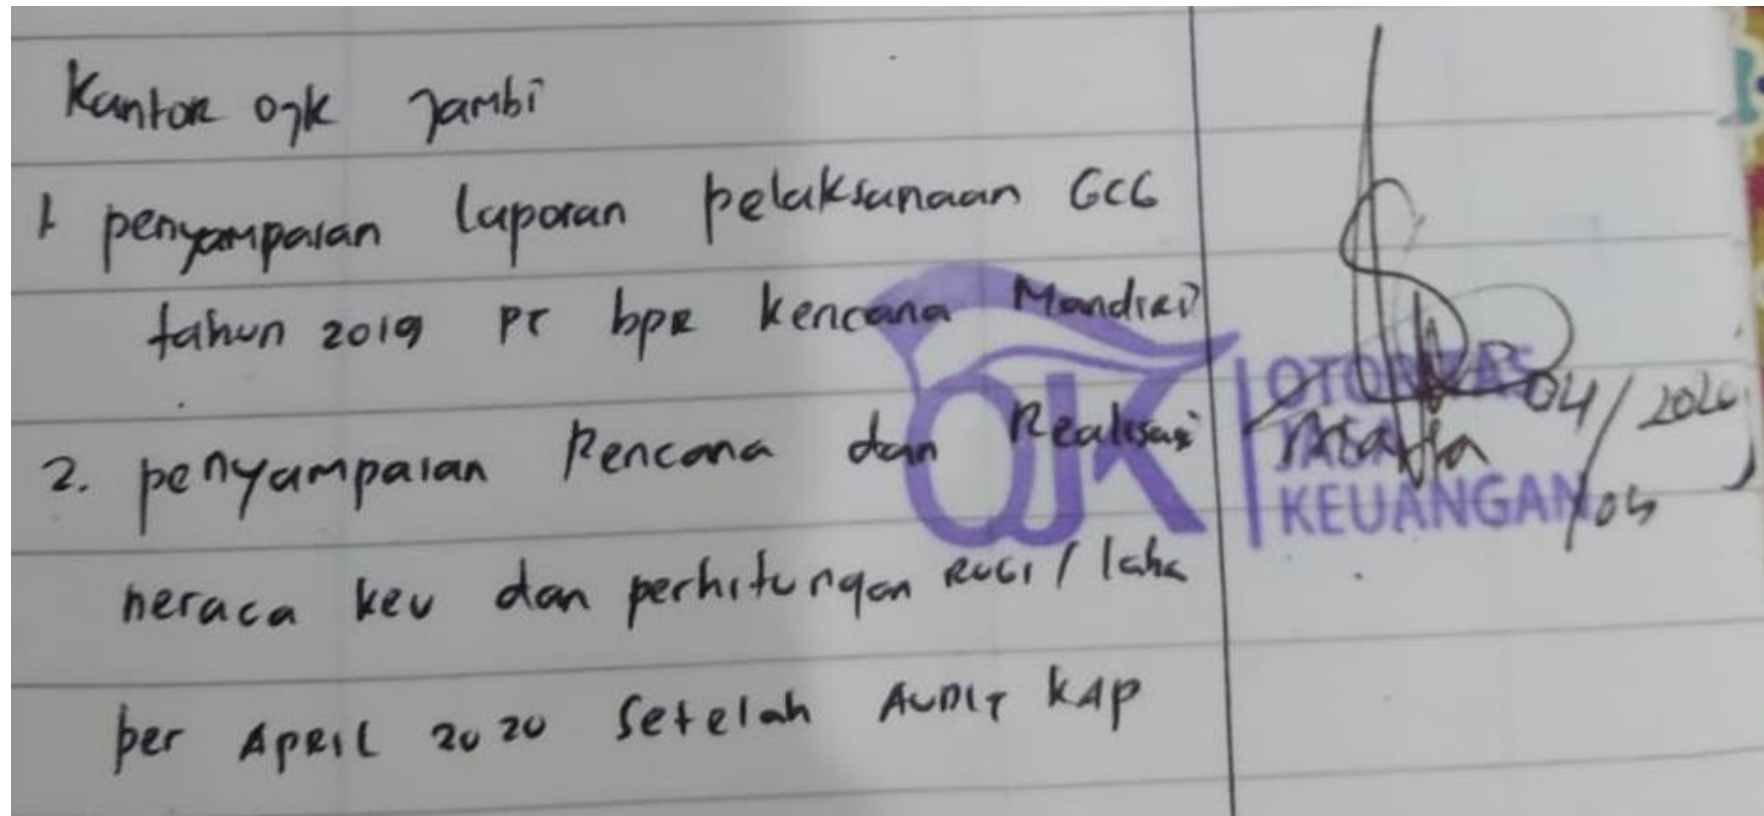 Kantor OJK Jambi
1 penyampaian laporan pelaksanaan GCG
tahun 2019 PT bpr kencana Mandiri
2. penyampaian Rencana dan Realisasi
neraca keu dan perhitungan RUGI / laba
per APRIL 2020 setelah AUDIT KAP
OJK
OTORITAS
JASA
KEUANGAN
04/2020
/05